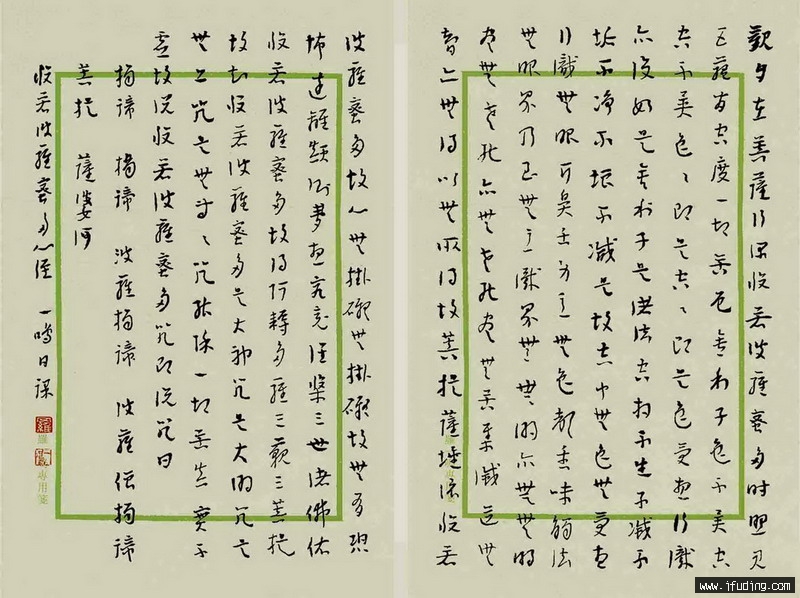 觀自在菩薩行深般若波羅蜜多時照見
五蘊皆空度一切苦厄舍利子色不異空
空不異色々即是空々即是色受想行識
亦復如是舍利子是諸法空相不生不滅不
垢不淨不增不減是故空中無色無受想
行識無眼耳鼻舌身意無色聲香味觸法
無眼界乃至無意識界無無明亦無無明
盡無老死亦無老死盡無苦集滅道無
智亦無得以無所得故菩提薩埵依般若
波羅蜜多故心無掛礙無掛礙故無有恐
怖遠離顛倒夢想究竟涅槃三世諸佛依
般若波羅蜜多故得阿耨多羅三藐三菩提
故知般若波羅蜜多是大神咒是大明咒是
無上咒是無等々咒能除一切苦真實不
虛故說般若波羅蜜多咒即說咒曰
揭諦 揭諦 波羅揭諦 波羅僧揭諦
菩提 薩婆訶
般若波羅蜜多心經 一鳴日課
專用箋
www.ifuding.com